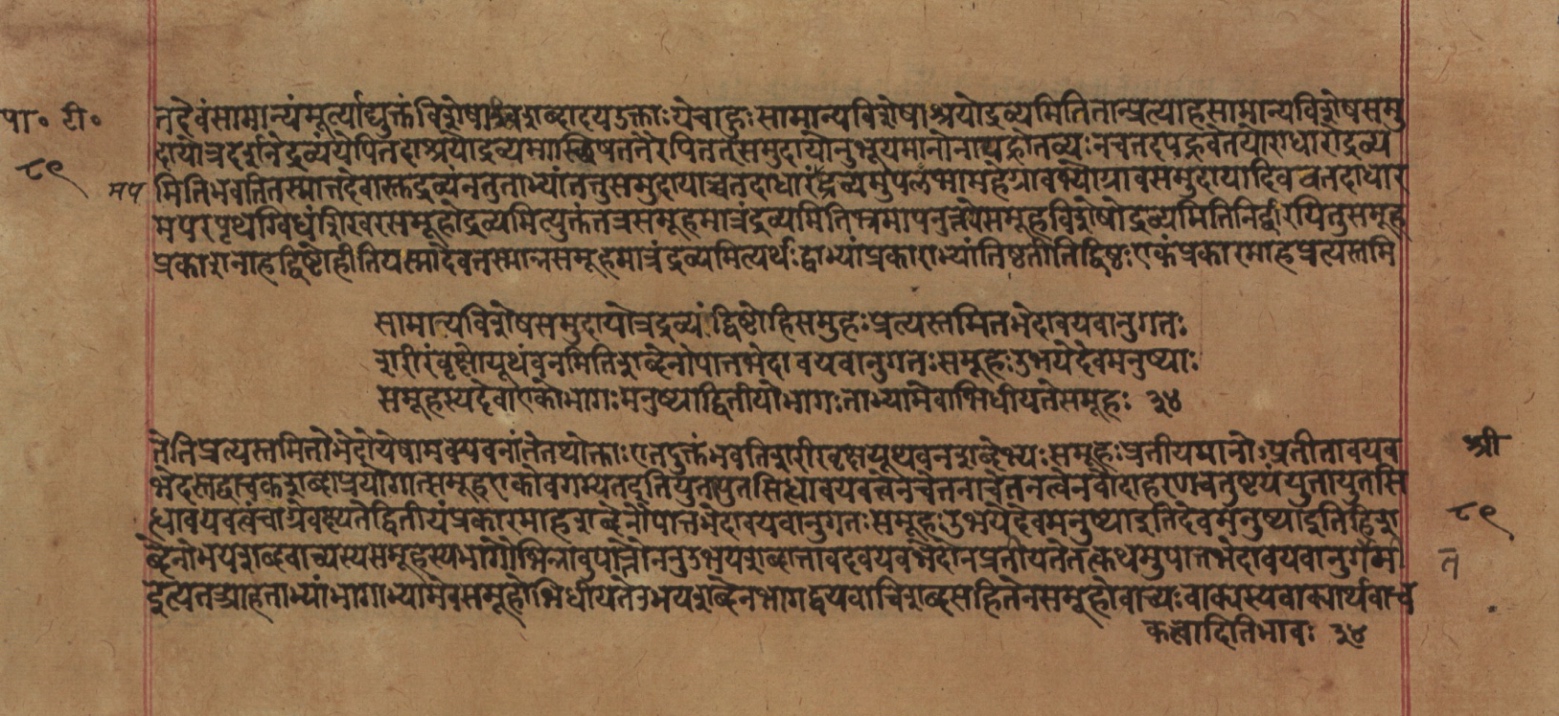 पा॰ टी॰
८९
तदेवंसामान्यंमूर्त्याद्युक्तंविशेषाश्चशब्दादयउक्ताःयेचाहुःसामान्यविशेषाश्रयोद्रव्यमितितान्प्रत्याहसामान्यविशेषसमु
दायोत्रदर्शनेद्रव्यंयेपितदाश्रयोद्रव्यमास्थिषततैरपितत्समुदायोनुभूयमानोनापह्नोतव्यःनचतदपह्नवेतयोराधारोद्रव्य
मितिभवतितस्मात्तदेवास्तद्रव्यंनतुताभ्यांतत्तुसमुदायाच्चतदाधारंद्रव्यमुपलभामहेग्रावभ्योग्रावसमुदायादिवचतदाधार
मपरपृथग्विधंशिखरसमूहोद्रव्यमित्युक्तंतत्रसमूहमात्रंद्रव्यमितिभ्रमापनुत्तयेसमूहविशेषोद्रव्यमितिनिर्द्धारयितुसमूह
प्रकारानाहद्विष्टोहीतियस्मादेवतस्मान्नसमूहमात्रंद्रव्यमित्यर्थःद्वाभ्यांप्रकाराभ्यांतिष्ठतीतिद्विष्ठःएकंप्रकारमाहप्रत्यस्तमि
सामान्यविशेषसमुदायोत्रद्रव्यं द्विष्टोहिसमुहःप्रत्यस्तमितभेदावयवानुगतः
शरीरंवृक्षोयूथंवनमितिशब्देनोपात्तभेदावयवानुगतःसमूहःउभयेदेवमनुष्याः
समूहस्यदेवाएकोभागःमनुष्याद्वितीयोभागःताभ्यामेवाभिधीयतेसमूहः ३४
तेतिप्रत्यस्तमितोभेदोयेषामवयवनांतेतथोक्ताःएतदुक्तंभवतिशरीरवृक्षयूथवनशब्देभ्यःसमूहःप्रतीयमानोऽप्रतीतावयव
भेदस्तद्वाचकशब्दाप्रयोगात्समूहएकोवगम्यतइतियुतायुतसिद्धावयवत्वेनचेतनाचेतनत्वेनवोदाहरणचतुष्टयंयुतायुतसि
द्धावयवत्वंचाग्रेवक्ष्यतेद्वितीयंप्रकारमाहशब्देनोपात्तभेदावयवानुगतःसमूहःउभयेदेवमनुष्याइतिदेवमनुष्याइतिहिश
ब्देनोभयशब्दवाच्यस्यसमूहस्यभागोभिन्नावुपात्तौननुउभयशब्दात्तावदवयवभेदोनप्रतीयतेतत्कथमुपात्तभेदावयवानुगर्मा
इत्यतआहताभ्यांभागाभ्यामेवसमूहोभिधीयतेउभयशब्देनभागद्वयवाचिशब्दसहितेनसमूहोवाच्यःवाक्यस्यवाक्यार्थवाच
कत्वादितिभावः ३४
श्री
८९
त